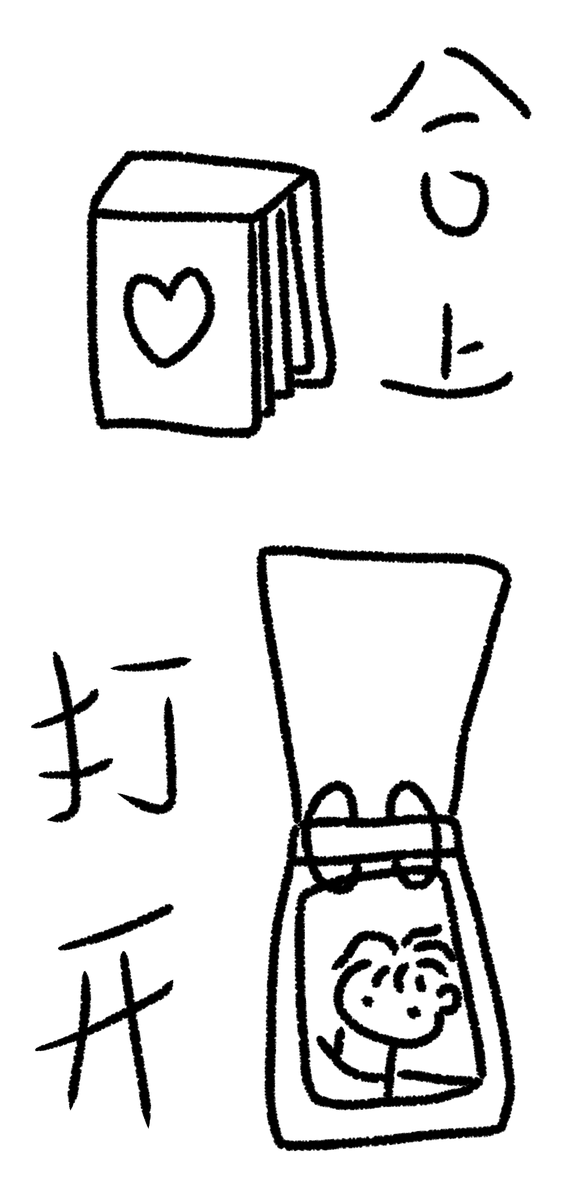 合上
打开